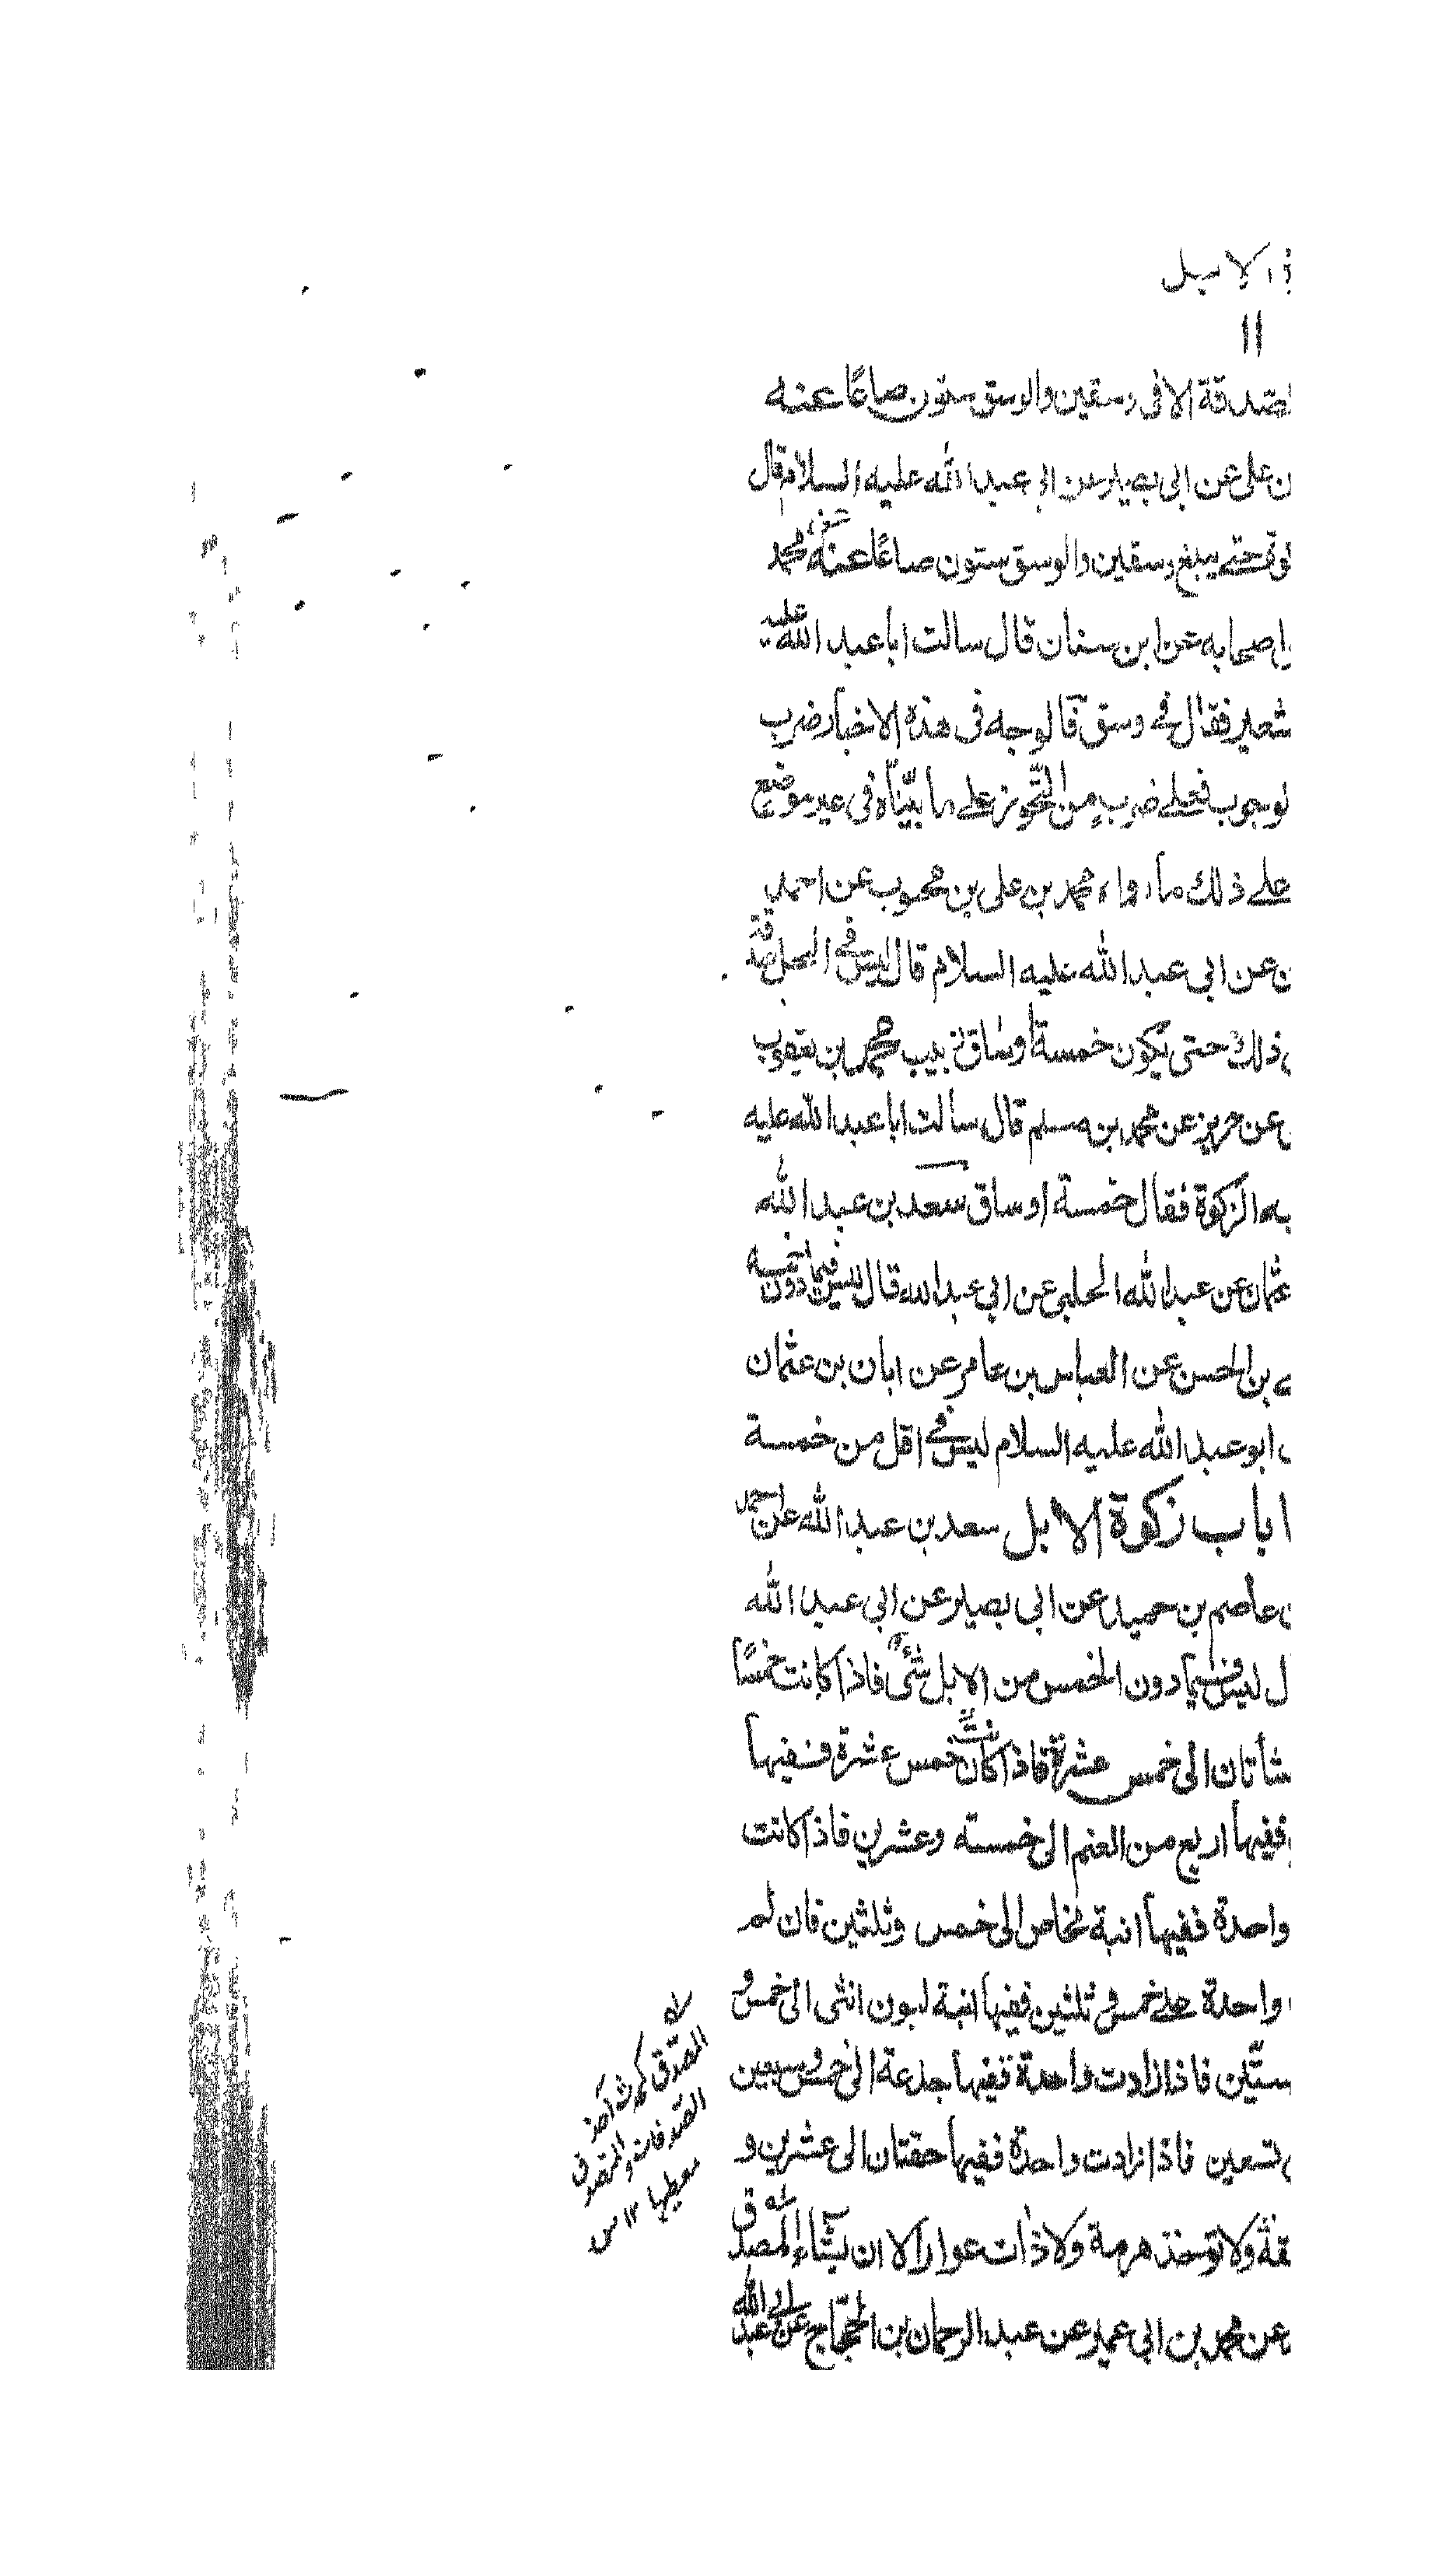 الابل
١١
لصدقة الا فى وسقين والوسق ستون صاعًا عنه
ن على عن ابى بصير عن ابى عبد الله عليه السلام قال
حتى يبلغ وسقين والوسق ستون صاعًا عنه محمد
اصحابه عن ابن سنان قال سالت ابا عبد الله عليه
شعير فقال فى وسق فالوجه فى هذه الاخبار ضرب
لوجوب فعلى ضرب من التجوز على ما بيّناه فى غير موضع
على ذلك ما رواه محمد بن على بن محبوب عن احمد
ن عن ابى عبد الله عليه السلام قال ليس فى النخل صدقة
ذلك حتى يكون خمسة اوساق زبيب محمد بن يعقوب
عن حريز عن محمد بن مسلم قال سألت ابا عبد الله عليه
به الزكوة فقال خمسة اوساق سعد بن عبد الله
عثمان عن عبد الله الحلبى عن ابى عبد الله قال ليس فيما دون خمسه
بن الحسن عن العباس بن عامر عن ابان بن عثمان
ابو عبد الله عليه السلام ليس فى اقل من خمسة
باب زكوة الابل سعد بن عبد الله عن احمد
ن عاصم بن حميد عن ابى بصير عن ابى عبد الله
ل ليس فيما دون الخمس من الابل شئ فاذا كانت خمسًا
شاتان الى خمس عشرة فاذا كانت خمس عشرة ففيها
ففيها اربع من الغنم الى خمسة وعشرين فاذا كانت
واحدة ففيها ابنة مخاض الى خمس وثلثين فان لم
واحدة على خمس و ثلثين ففيها ابنة لبون انثى الى خمس و
ستّين فاذا زادت واحدة ففيها جذعة الى خمس و سبعين
تسعين فاذا زادت واحدة ففيها حقتان الى عشرين و
قة ولا توخذ هرمة ولا ذات عوار الا ان يشاء المصدق
عن محمد بن ابى عمير عن عبد الرحمان بن الحجاج عن ابى عبد الله
المصدق كمحدث آخذ
الصدقات والمتصدق
معطيها ١٢ ص